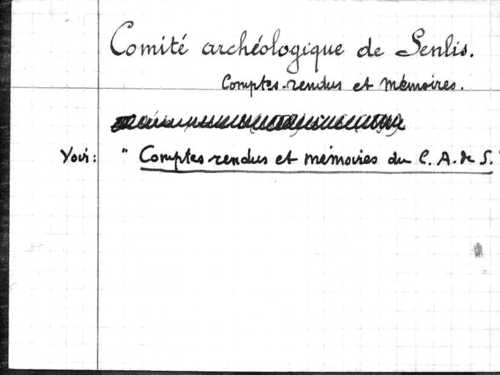 Comité archéologique de Senlis.
Comptes-rendus et Mémoires.
Voir : " Comptes rendus et mémoires du C. A. de S. "